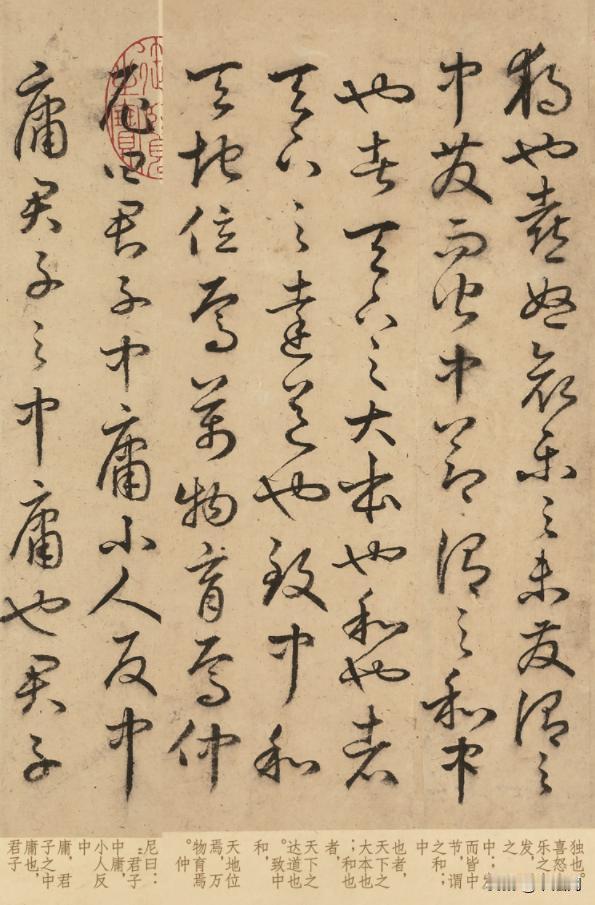 獨也喜怒哀樂之未發謂之
中發而皆中節謂之和中
也者天下之大本也和也者
天下之達道也致中和
天地位焉萬物育焉仲
尼曰君子中庸小人反中
庸君子之中庸也君子
独也。
喜怒
乐之
发，
之
中；发
而皆中
节，谓
之和；
中
也者，
天下之
大本也
；和也
者，
天下之
达道也
。致中
和，
天地位
焉，万
物育焉
。仲
尼曰：
“君子
中庸，
小人反
中
庸，君
子之中
庸也，
君子